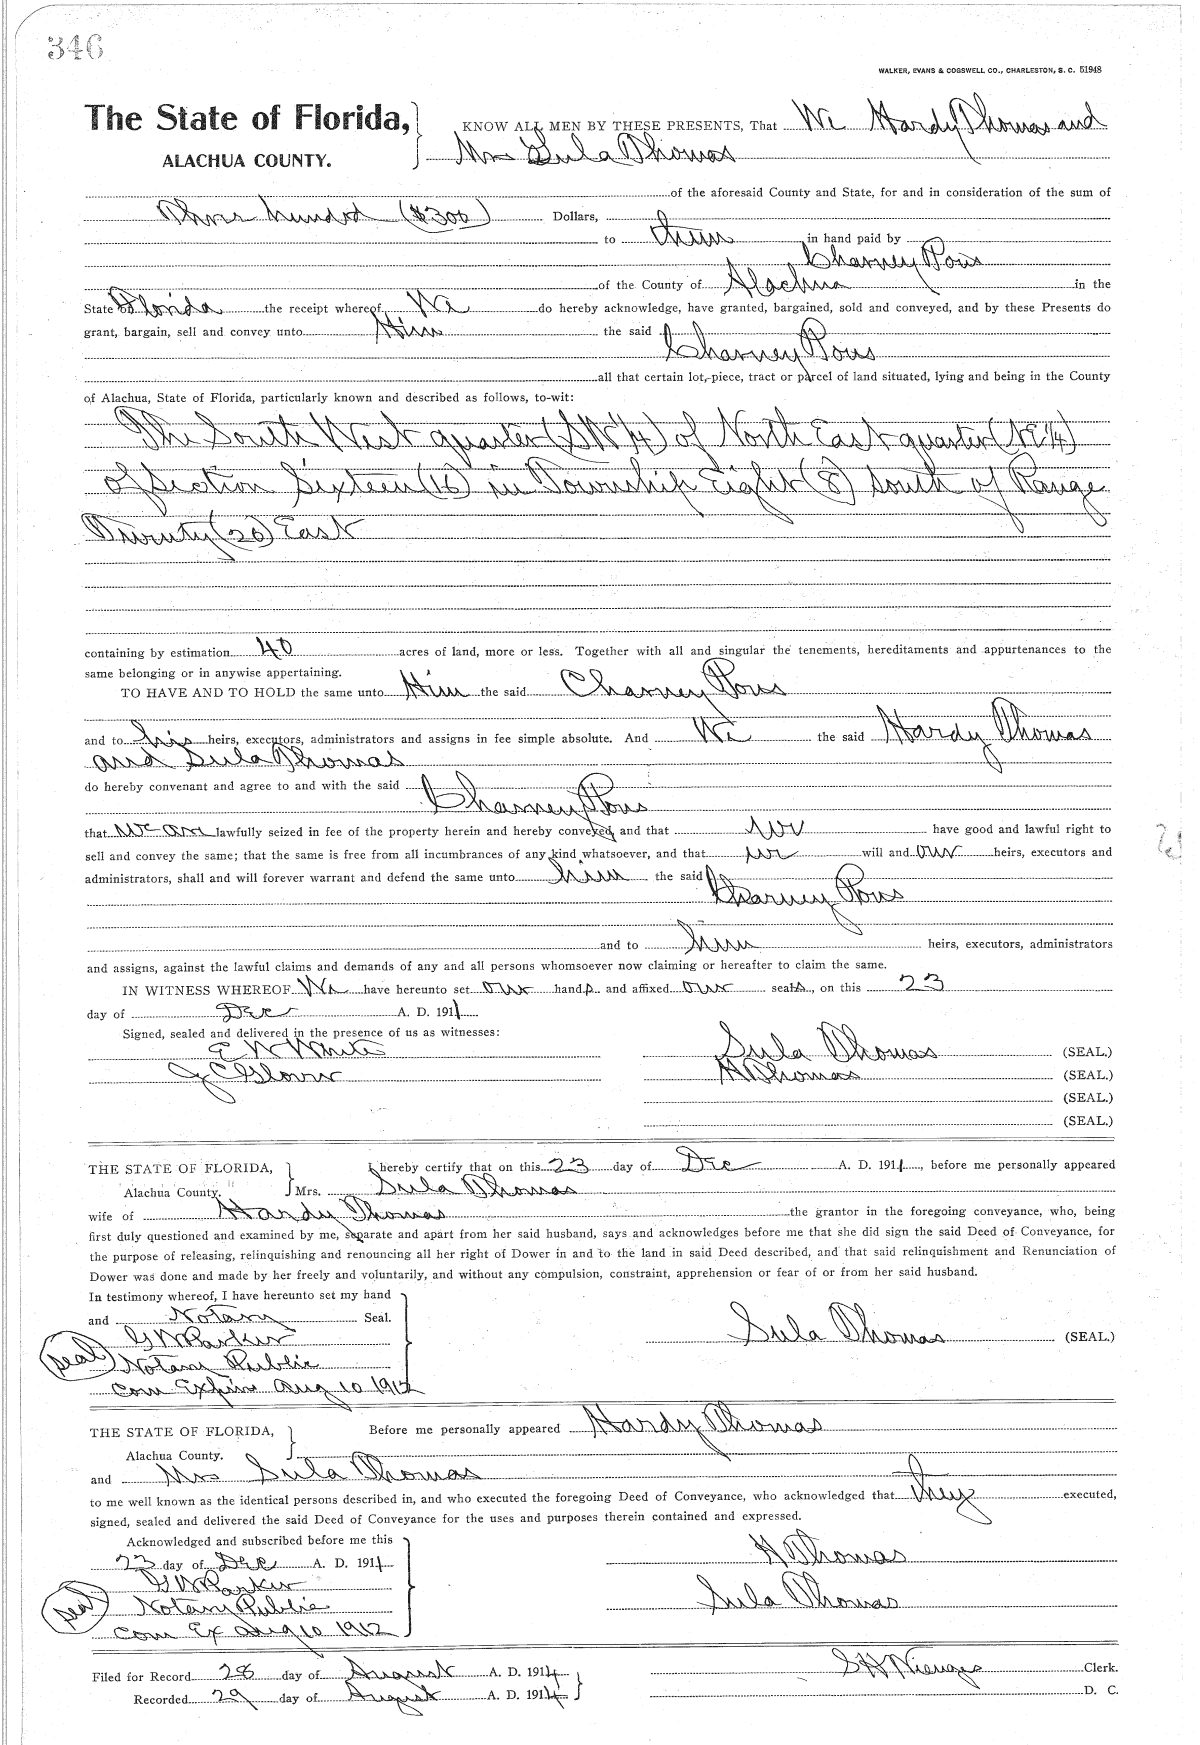 346
WALKER, EVANS & COGSWELL CO., CHARLESTON, S. C. 51948
The State of Florida, KNOW ALL MEN BY THESE PRESENTS, That We Hardy Thomas and
ALACHUA COUNTY. Mrs Sula Thomas
of the aforesaid County and State, for and in consideration of the sum of
Three hundred ($300) Dollars,
to them in hand paid by
Charney Pous
of the County of Alachua in the
State of Florida the receipt whereof We do hereby acknowledge, have granted, bargained, sold and conveyed, and by these Presents do
grant, bargain, sell and convey unto Him the said
Charney Pous
all that certain lot, piece, tract or parcel of land situated, lying and being in the County
of Alachua, State of Florida, particularly known and described as follows, to-wit:
The South West quarter (SW 1/4) of North East quarter (NE 1/4)
of Section Sixteen (16) in Township Eight (8) South of Range
Twenty (20) East
containing by estimation 40 acres of land, more or less. Together with all and singular the tenements, hereditaments and appurtenances to the
same belonging or in anywise appertaining.
TO HAVE AND TO HOLD the same unto Him the said Charney Pous
and to his heirs, executors, administrators and assigns in fee simple absolute. And We the said Hardy Thomas
and Sula Thomas
do hereby convenant and agree to and with the said
Charney Pous
that we am lawfully seized in fee of the property herein and hereby conveyed, and that we have good and lawful right to
sell and convey the same; that the same is free from all incumbrances of any kind whatsoever, and that we will and our heirs, executors and
administrators, shall and will forever warrant and defend the same unto him the said
Charney Pous
and to him heirs, executors, administrators
and assigns, against the lawful claims and demands of any and all persons whomsoever now claiming or hereafter to claim the same.
IN WITNESS WHEREOF We have hereunto set our hands and affixed our seals, on this 23
day of Dec A. D. 1911
Signed, sealed and delivered in the presence of us as witnesses:
E W White Sula Thomas (SEAL.)
J C Glover H Thomas (SEAL.)
(SEAL.)
(SEAL.)
THE STATE OF FLORIDA, I hereby certify that on this 23 day of Dec A. D. 1911, before me personally appeared
Alachua County. Mrs. Sula Thomas
wife of Hardy Thomas the grantor in the foregoing conveyance, who, being
first duly questioned and examined by me, separate and apart from her said husband, says and acknowledges before me that she did sign the said Deed of Conveyance, for
the purpose of releasing, relinquishing and renouncing all her right of Dower in and to the land in said Deed described, and that said relinquishment and Renunciation of
Dower was done and made by her freely and voluntarily, and without any compulsion, constraint, apprehension or fear of or from her said husband.
In testimony whereof, I have hereunto set my hand
and Notary Seal.
G W Parker Sula Thomas (SEAL.)
(seal) Notary Public
Com Expires Aug 10 1912
THE STATE OF FLORIDA, Before me personally appeared Hardy Thomas
Alachua County.
and Mrs Sula Thomas
to me well known as the identical persons described in, and who executed the foregoing Deed of Conveyance, who acknowledged that they executed,
signed, sealed and delivered the said Deed of Conveyance for the uses and purposes therein contained and expressed.
Acknowledged and subscribed before me this
23 day of Dec A. D. 1911 H Thomas
G W Parker
(seal) Notary Public Sula Thomas
Com Ex Aug 10 1912
Filed for Record 28 day of August A. D. 1914 S H Wienges Clerk.
Recorded 29 day of August A. D. 1914 D. C.